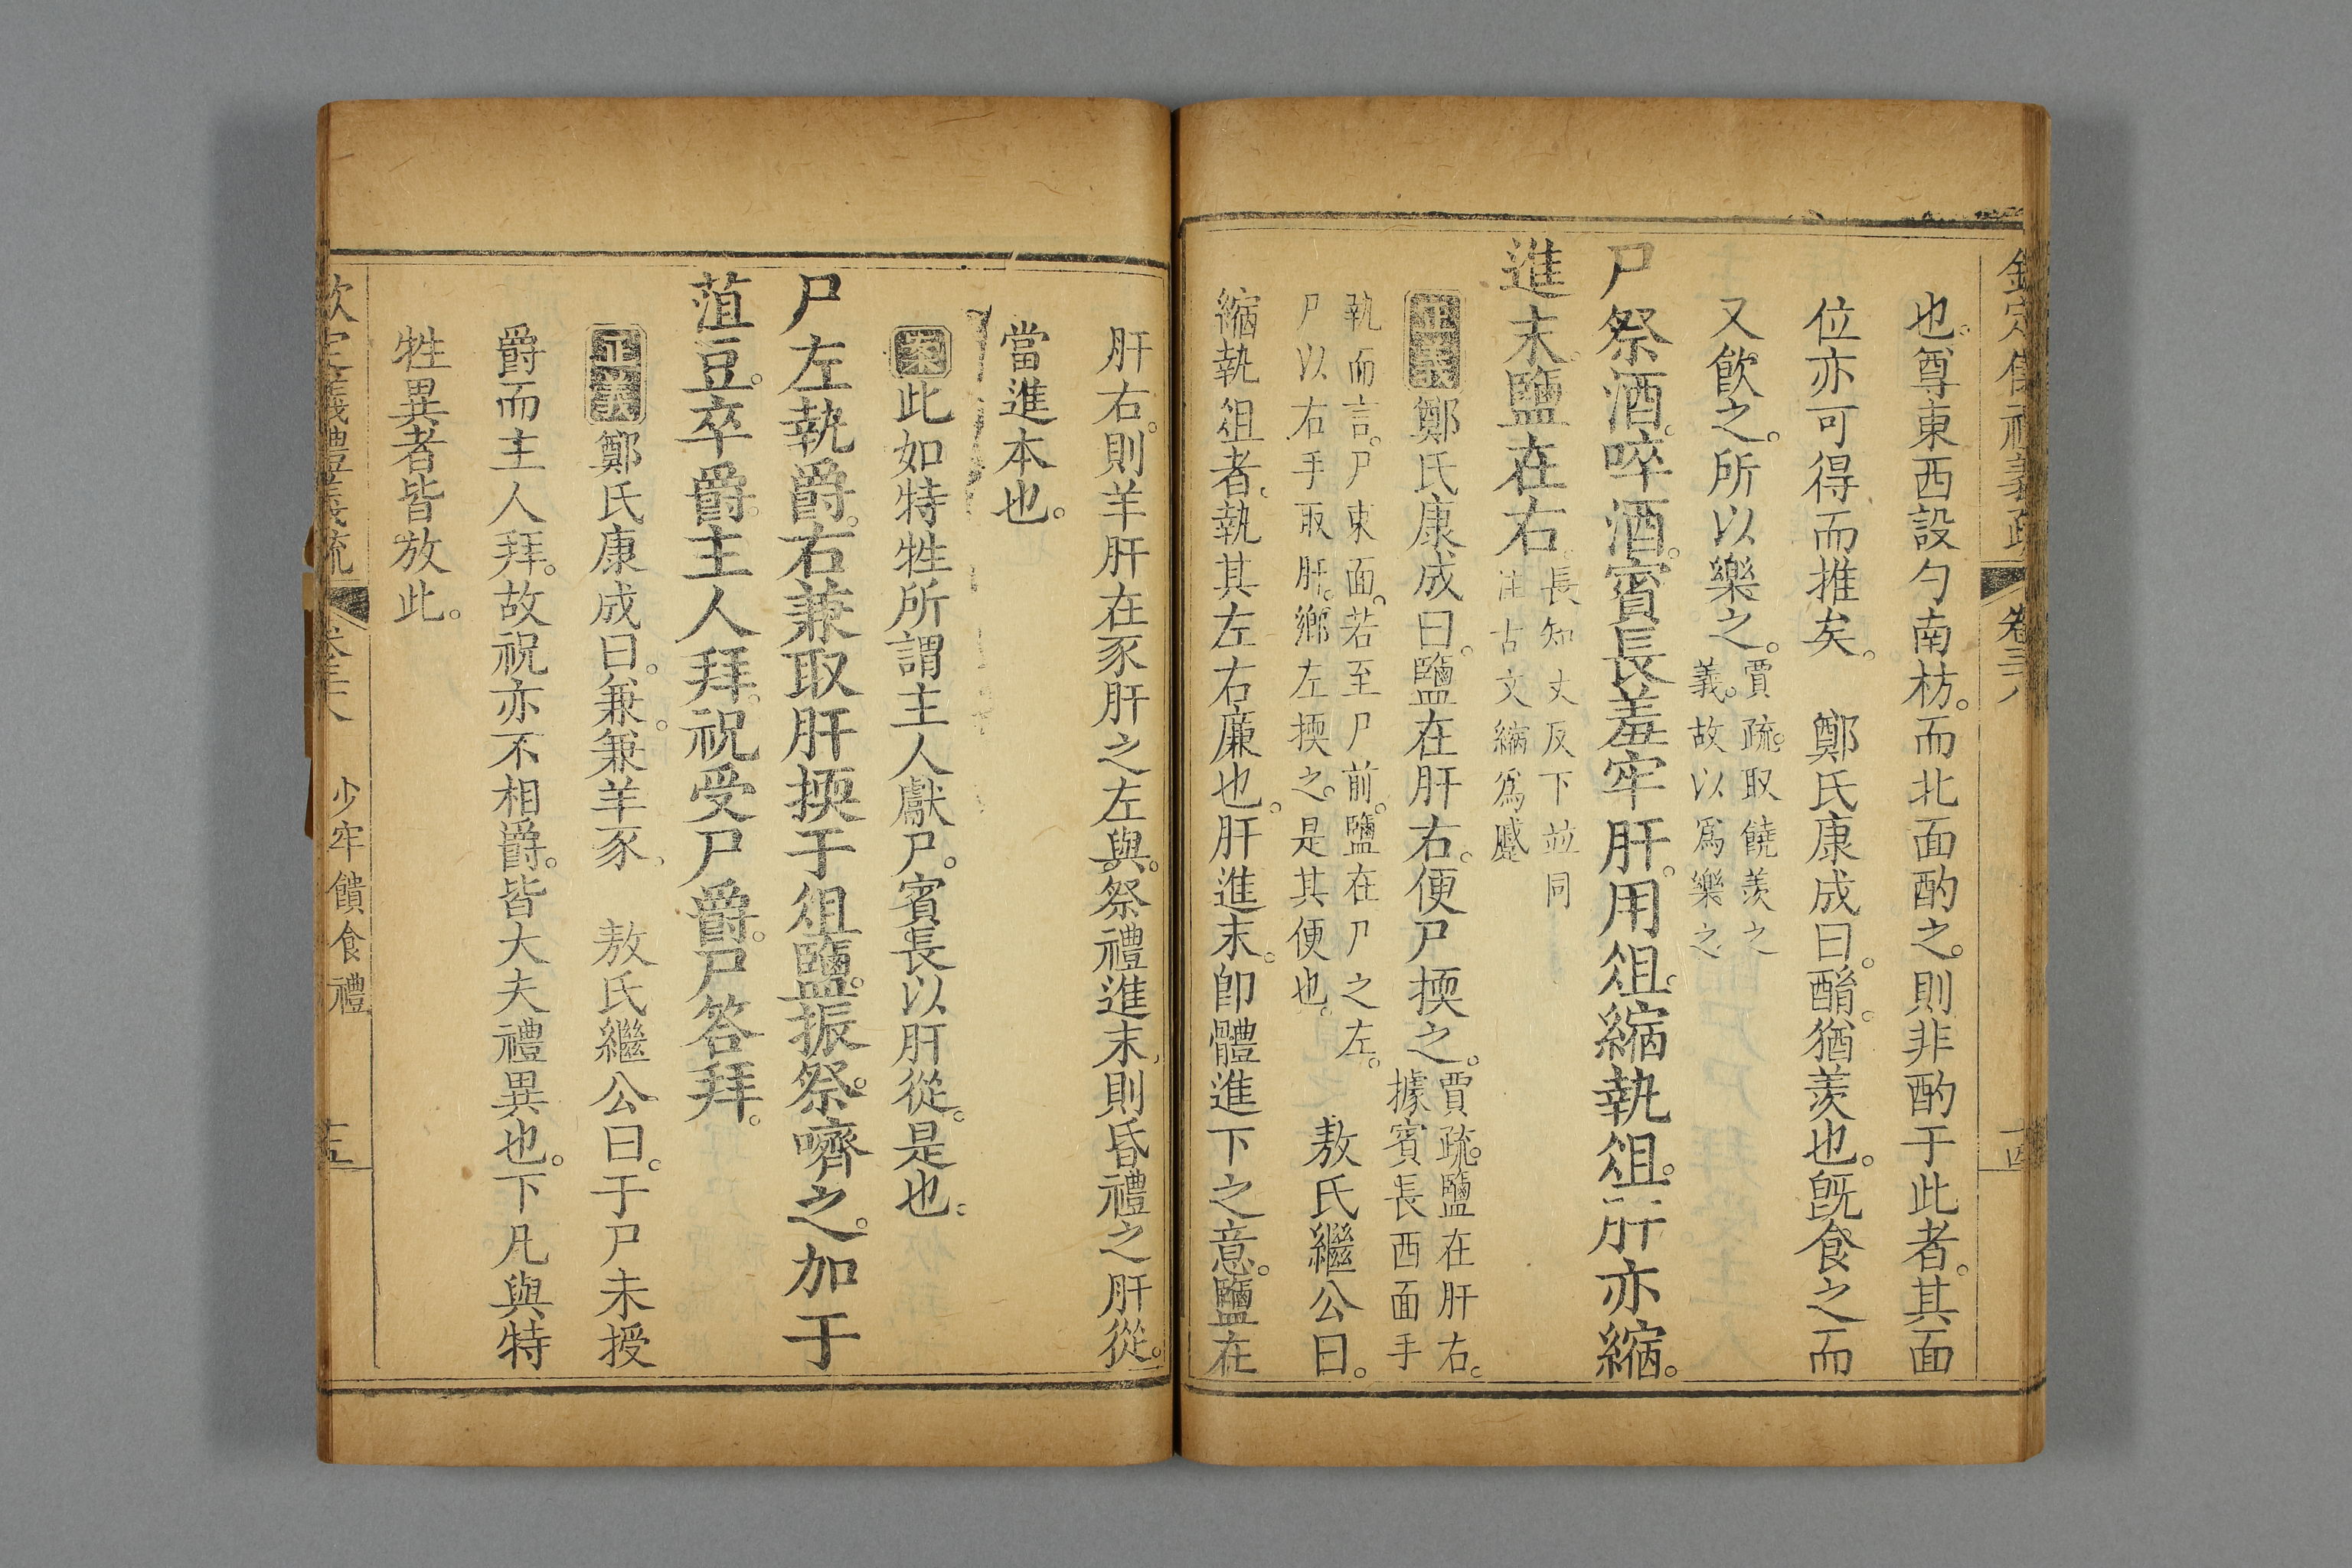 欽定儀禮義疏 卷三十八 十四
也。尊東西設勺南枋。而北面酌之。則非酌于此者。其面
位亦可得而推矣。 鄭氏康成曰。酳。猶羨也。既食之而
又飲之。所以樂之。賈疏。取饒羨之
義。故以爲樂之
尸祭酒。啐酒。賓長羞牢肝。用俎。縮執俎。肝亦縮。
進末。鹽在右。長知丈反下竝同
注古文縮爲蹙
正義鄭氏康成曰。鹽在肝右。便尸㨎之。賈疏。鹽在肝右。
據賓長西面手
執而言。尸東面。若至尸前。鹽在尸之左。
尸以右手取肝。鄉左㨎之。是其便也。 敖氏繼公曰。
縮執俎者。執其左右廉也。肝進末。卽體進下之意。鹽在
肝右。則羊肝在豕肝之左與。祭禮進末。則昏禮之肝從。
當進本也。
案此如特牲所謂主人獻尸。賓長以肝從。是也。
尸左執爵。右兼取肝㨎于俎鹽。振祭。嚌之。加于
菹豆。卒爵。主人拜。祝受尸爵。尸答拜。
正義鄭氏康成曰。兼。兼羊豕。 敖氏繼公曰。于尸未授
爵而主人拜。故祝亦不相爵。皆大夫禮異也。下凡與特
牲異者皆放此。
欽定儀禮義疏 卷三十八 少牢饋食禮 十五